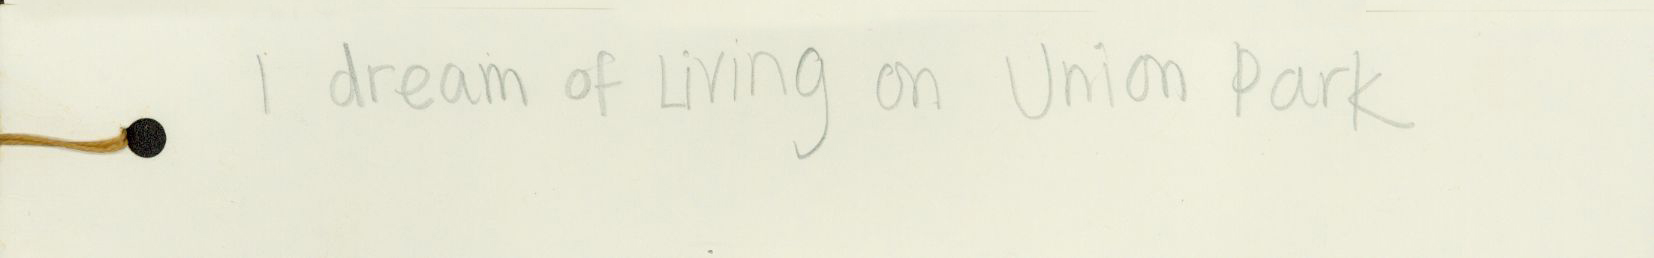 I dream of Living on Union Park